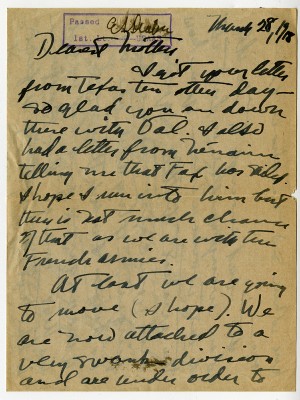 Passed
1st. Lt.
March 28/18
Dearest Mother
I got your letter
from Texas the other day—
so glad you are down
there with Dal. I also
had a letter from
telling me that Fax has
I hope I run into him but
there is not much chance
of that as we are with the
French armies.
At last we are going
to move (I hope). We
are now attached to a
very swank division
and are under order to